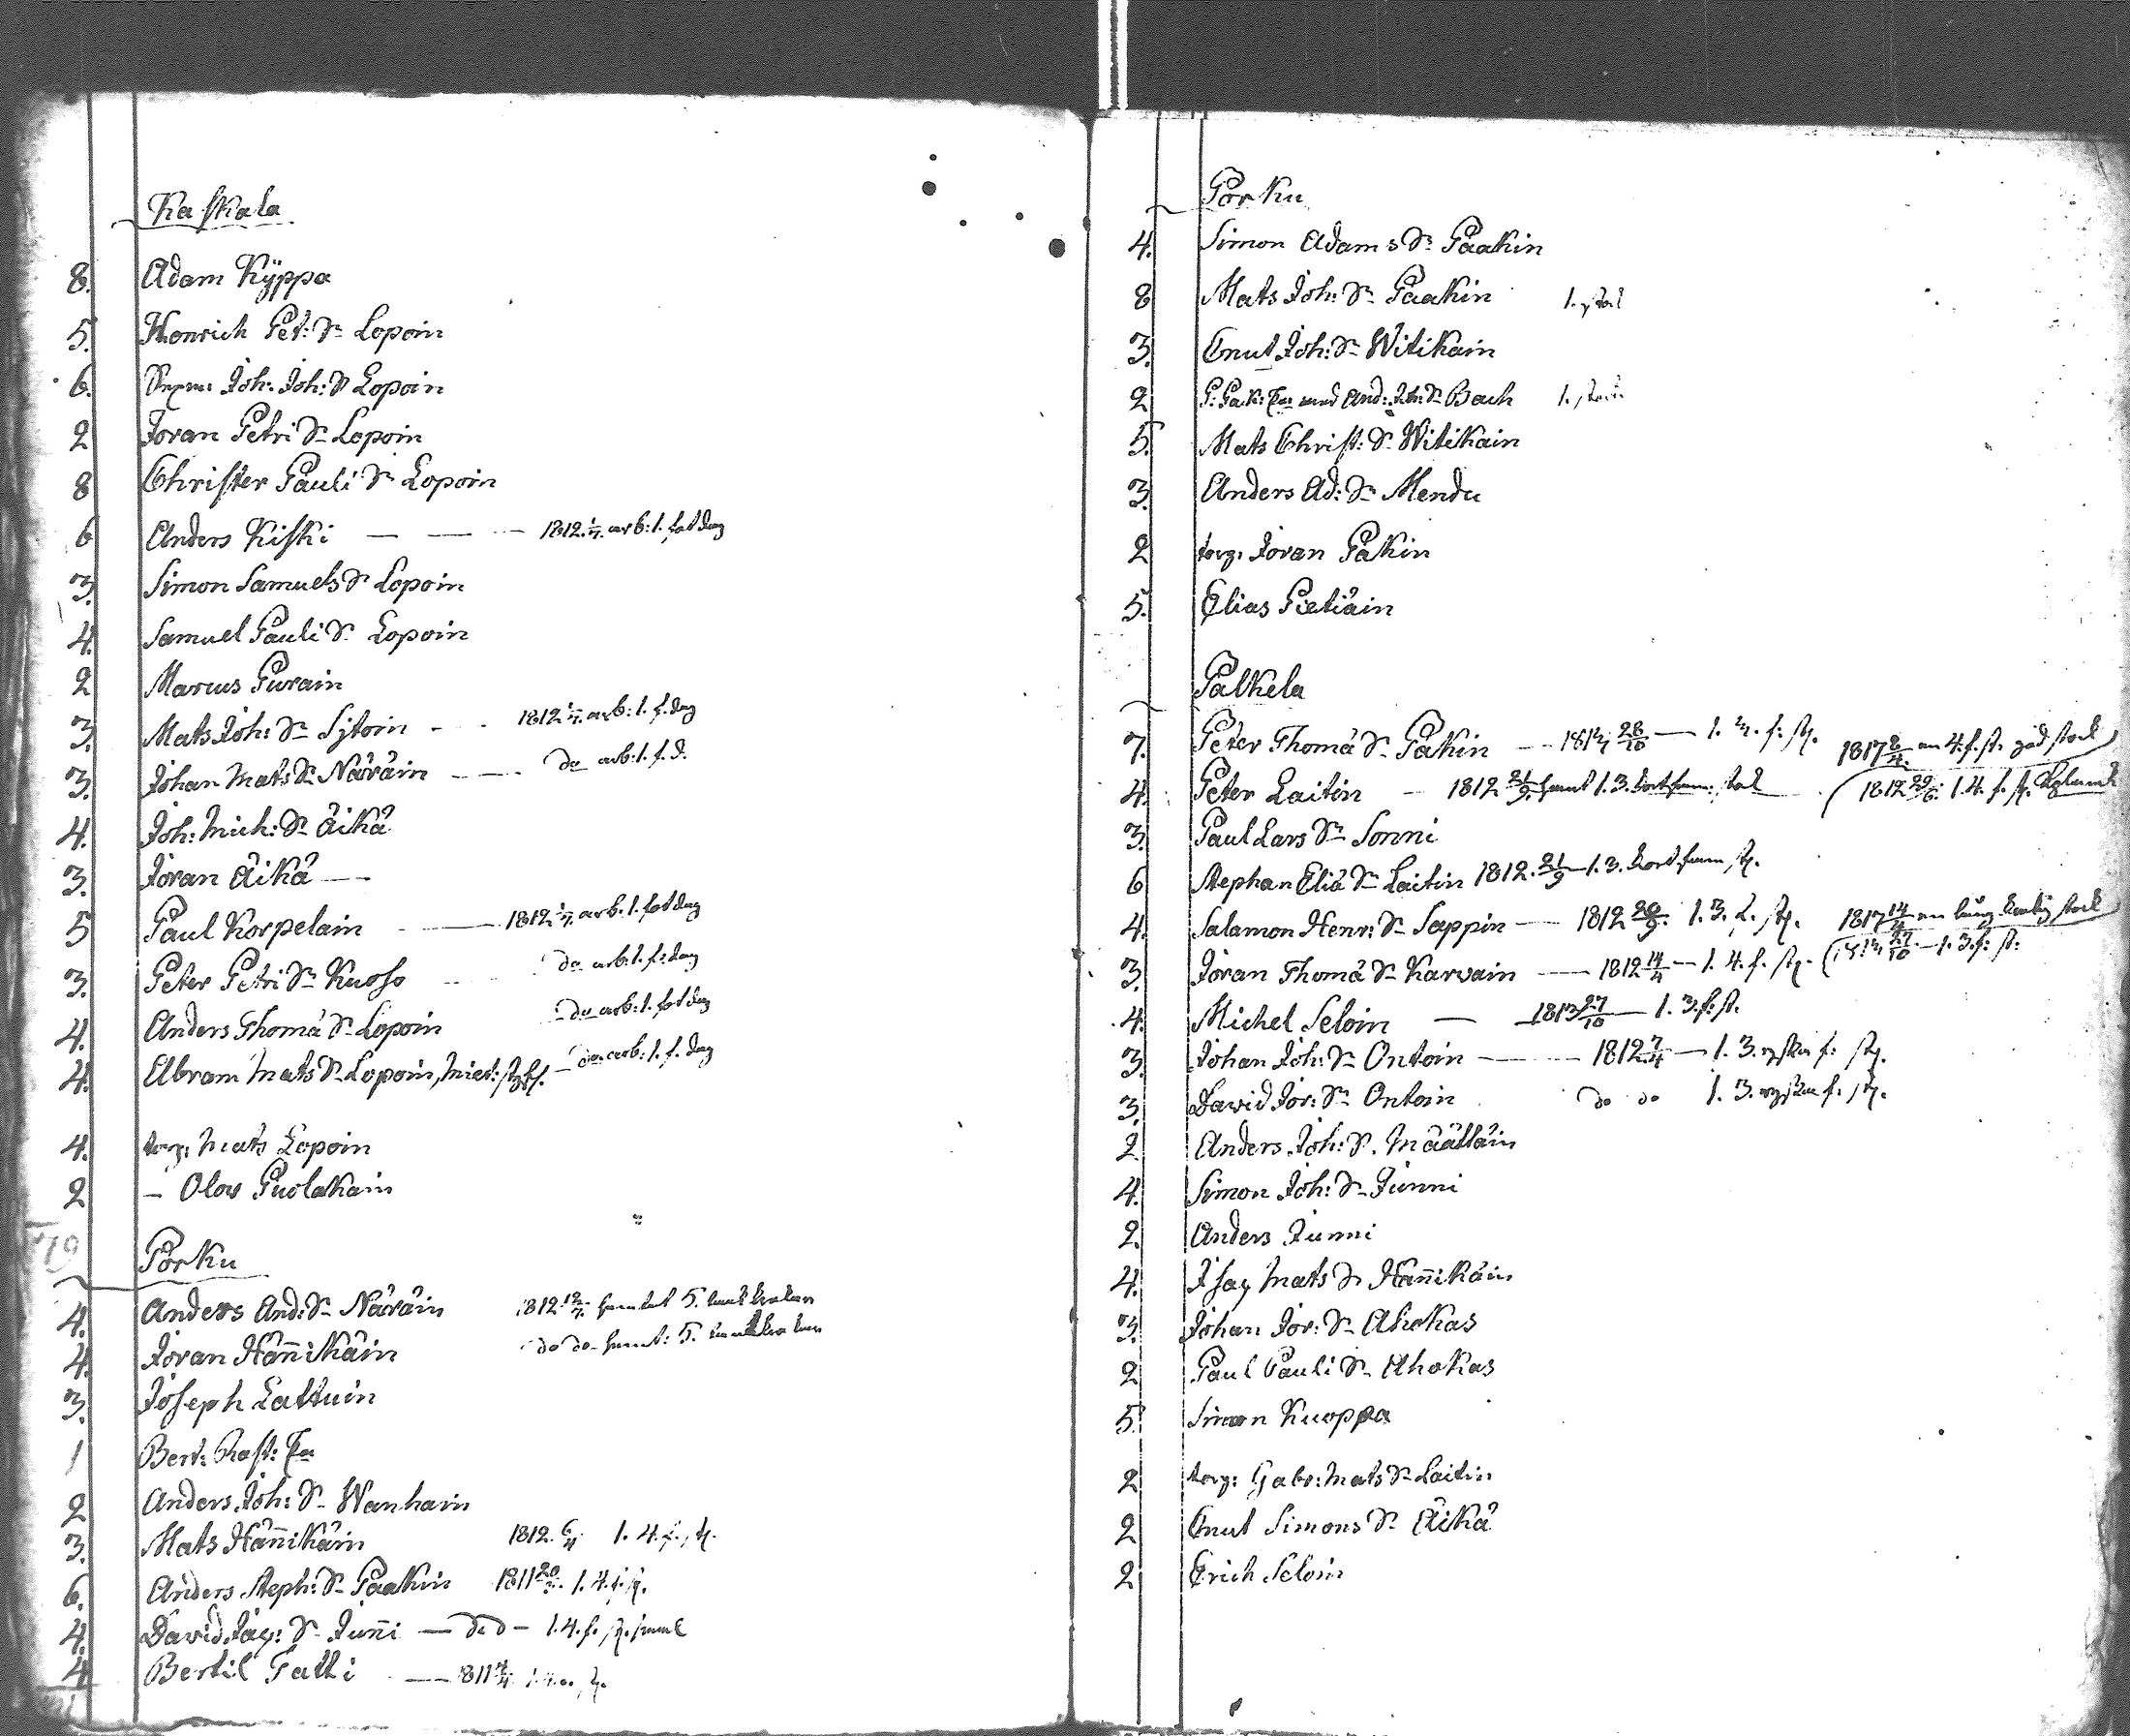 Kaskala
8. Adam Kÿppa
5. Henrich Pet: Sn Lopoin
6. Joh: Joh: Sn Lopoin
2 Jöran Petri Sn Lopoin
8 Christer Pauli Sn Lopoin
6 Anders Kiski — — — 1812. 1/7. arb: 1. fot dag
3. Simon Samuels Sn Lopoin
4. Samuel Pauli Sn Lopoin
2 Marcus Purain
3. Mats Joh: Sn Sÿtoin - - 1812 1/7. arb: 1. f. dag
3. Johan Mats Sn Näräin - - - do arb: 1. f. d.
4. Joh: Mich: Sn Äikä
3. Jöran Äikä —
5 Paul Korpelain — 1812 1/7 arb. 1. fot dag
3. Peter Petri Sn Kuoso - - do arb: 1. f: dag
4. Anders Thomä Sn Lopoin - do arb: 1. fot dag
4. Abram Mats Sn Lopoin, - do arb: 1. f. dag
4. torp: Mats Lopoin
2 — Olov Puolakain
79
Porku
4. Anders And: Sn Näräin 1812 12/7 hemtat 5.
4. Jöran Hän̄ikäin do do hemt: 5.
3. Joseph Lattuin
1 Bert: Rast:
2 Anders Joh: Sn Wanhain
3. Mats Hän̄ikäin 1812. 6/4 1. 4. f. st.
6. Anders Steph: Sn Paakin 1811 1. 4. f. st.
4. David Sn Jun̄i — d. d — 1. 4. f. st.
4 Bertil Talki — 1811
Porku
4. Simon Adams Sn Paakin
8 Mats Joh: Sn Paakin 1. stok
3. Cnut Joh: Sn Witikain
2 And: Joh: Sn Bach 1. stok
5. Mats Christ: Sn Witikain
3. Anders Ad: Sn Mendu
2 torp: Jöran Pakin
5. Elias Pietiäin
Palkela
7. Peter Thomä Sn Päkin — 28/10 — 1. f: st. 1817 8/4. en 4. f. st. stock
4. Peter Laitin — 1812 21/9 hemt 1. 3. stok 1812 29/6. 1. 4. f. st.
3. Paul Lars Sn Sonni
6 Stephan Eliä Sn Laitin 1812. 21/9 — 1. 3. st.
4. Salamon Henr: Sn Seppin — 1812 1. 3. st. 1817 14/4 en lång stock
3. Jöran Thomä Sn Karvain — 1812 14/4 — 1. 4. f. st. 27/10 — 1. 3. f: st:
4. Michel Seloin — 1813 27/10 — 1. 3. f: st.
3. Johan Joh: Sn Ontoin — 1812 7/4 — 1. 3. ryska f: st.
3. David Jör: Sn Ontoin do do 1. 3. ryska f: st.
2 Anders Joh: Sn Määttäin
4. Simon Joh: Sn Junni
2. Anders Junni
4. Mats Sn Hän̄ikäin
3. Johan Jör: Sn Ahokas
2 Paul Pauli Sn Ahokas
5 Simon Kuoppa
2 torp: Gabr: Mats Sn Laitin
2 Cnut Simons Sn Äikä
2 Erich Seloin